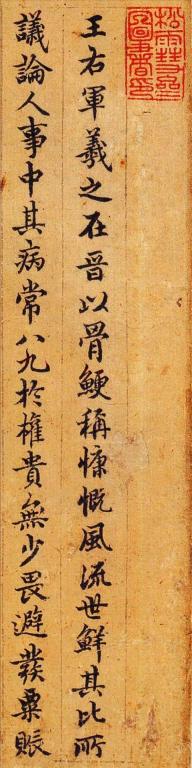 松雪齋
圖書印
王右軍羲之在晉以骨鯁稱慷慨風流世鮮其比所
議論人事中其病常八九於權貴無少畏避發粟賑